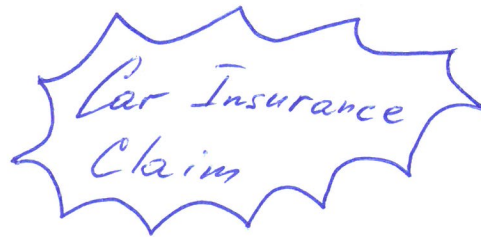 Car Insurance
Claim